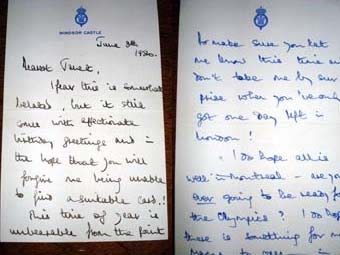 WINDSOR CASTLE
June 9th
1976.
Dearest
I fear this is somewhat
belated, but it still
comes with affectionate
birthday greetings and in
the hope that you will
forgive me being unable
to find a suitable card.!
This time of year is
unbearable from the point
to make sure you let
me know this time and
don't take me by sur
prise when you've only
got one day left in
London!
I do hope all is
well in Montreal - are you
ever going to be ready for
the Olympics? I do hope
there is something for